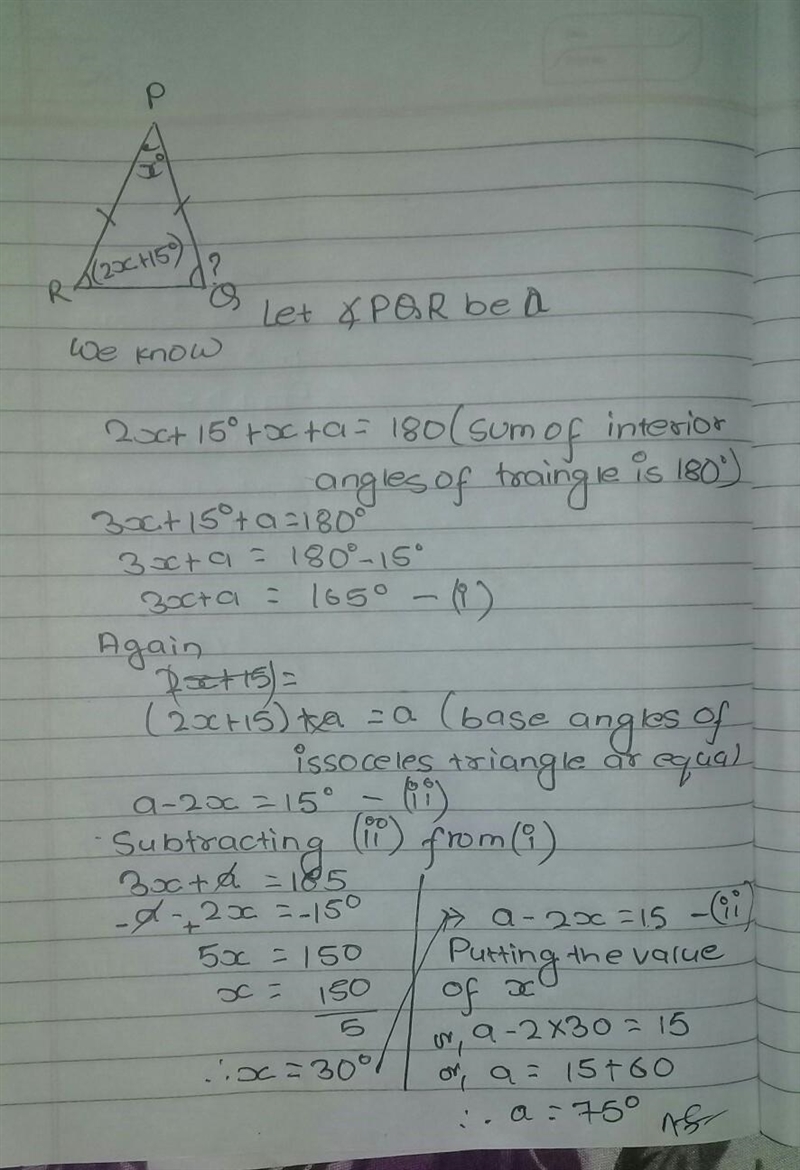 P
x°
(2x+15°)
?
R
Q
Let ∡PQR be a
We know
2x+15°+x+a=180 (sum of interior
angles of traingle is 180°)
3x+15°+a=180°
3x+a = 180°-15°
3x+a = 165° - (i)
Again
(2x+15)=
(2x+15) = a (base angles of
issoceles triangle ar equal
a-2x = 15° - (ii)
Subtracting (ii) from (i)
3x+a = 165
-a-+2x = -15°
5x = 150
x = 150
5
∴x = 30°
⇒ a-2x = 15 -(ii)
Putting the value
of x
or, a-2×30 = 15
or, a = 15+60
∴ a = 75° Ans